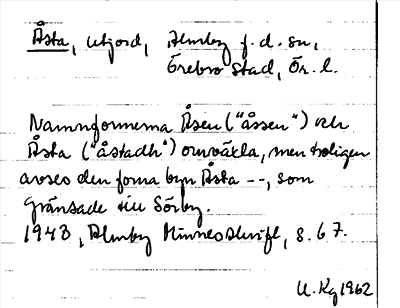 Åsta, utjord, Almby f.d. sn,
Örebro stad, Ör. l.
Namnformerna Åsen ("åssen") och
Åsta ("åstadh") omväxla, men troligen
avses den forna byn Åsta --, som
gränsade till Sörby.
1943, Almby Minnesskrift, s. 67.
U. Kg 1962